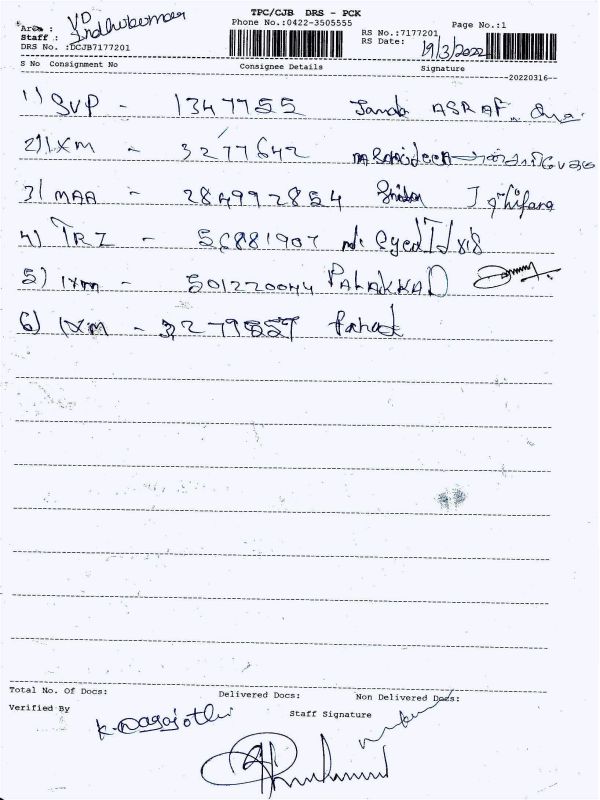 TPC/CJB DRS - PCK
Area : VD
Phone No.:0422-3505555
Page No.:1
Staff : Indhukumar
RS No.:7177201
DRS No. :DCJB7177201
RS Date: 19/3/2022
S No Consignment No Consignee Details Signature
20220316
1) SVP - 1347755 ASRAF
2) IXM - 3277642
3) MAA - 284992854
4) TRZ - 56881907
5) IXM - 501220044 PALAKKAD
6) IXM - 3279559 Fahad
Total No. Of Docs: Delivered Docs: Non Delivered Docs:
Verified By K. Nagajothi Staff Signature